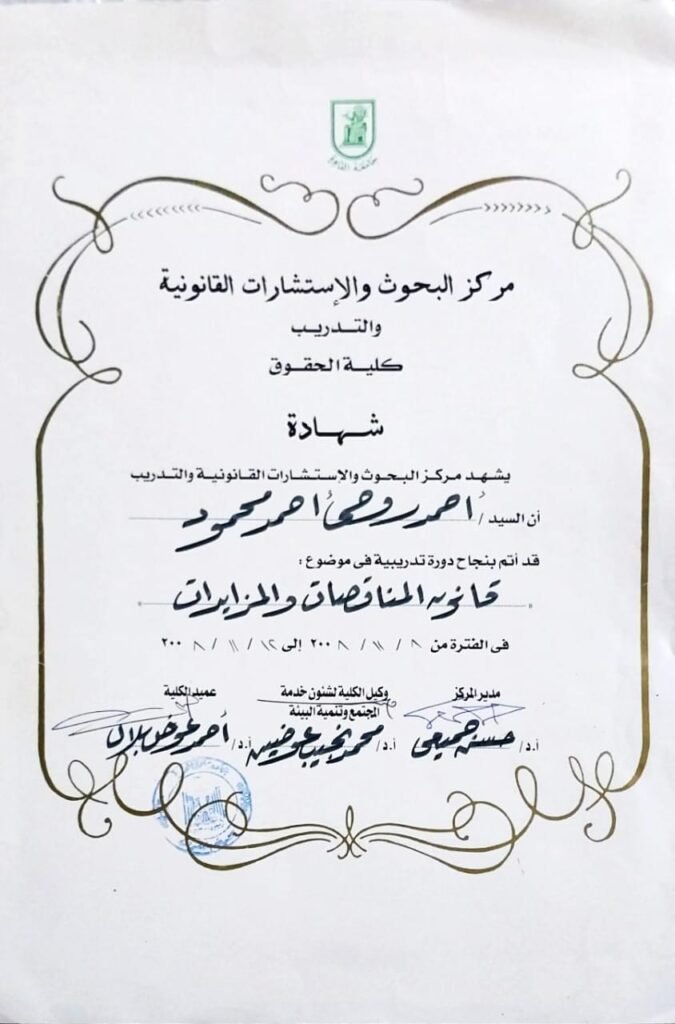 جامعة القاهرة
مركز البحوث والإستشارات القانونية
والتدريب
كلية الحقوق
شهادة
يشهد مركز البحوث والإستشارات القانونية والتدريب
أن السيد / أحمد روحى أحمد محمود
قد أتم بنجاح دورة تدريبية فى موضوع :
" قانون المناقصات والمزايدات "
فى الفترة من ٨ / ١١ / ٢٠٠٨ إلى ١٢ / ١١ / ٢٠٠٨
مدير المركز
وكيل الكلية لشئون خدمة
المجتمع وتنمية البيئة
عميد الكلية
أ.د/ حسن جميعى
أ.د/ محمد نجيب عوضين
أ.د/ أحمد عوض بلال